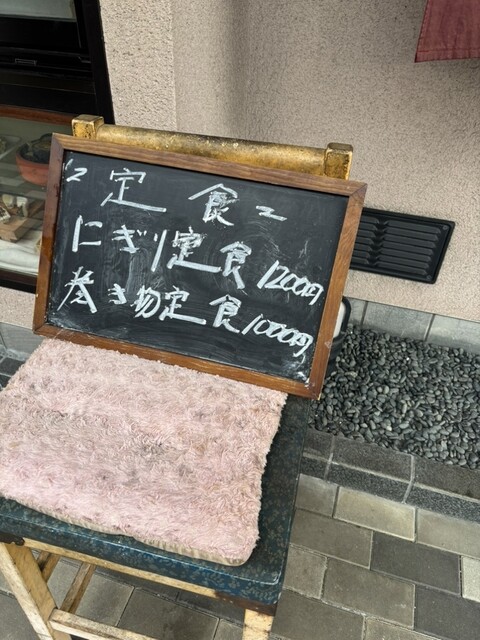 ~定食~
にぎり定食 1200円
巻き物定食 1000円